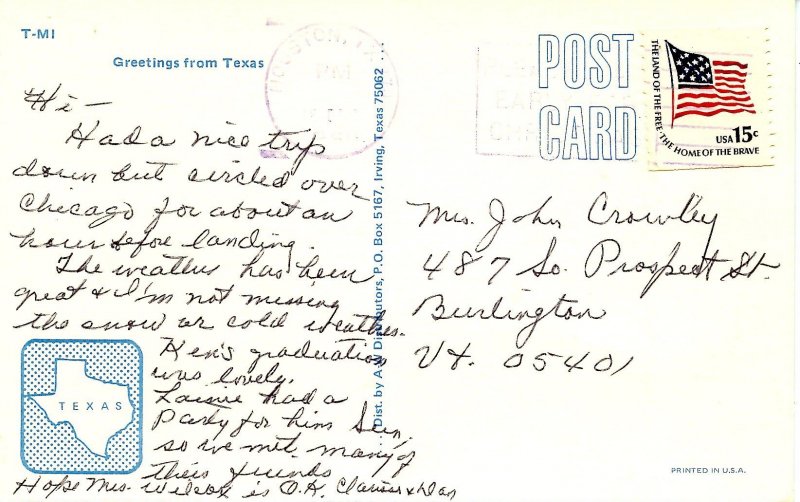 T-MI
Greetings from Texas
HOUSTON, TX
PM
POST
CARD
THE LAND OF THE FREE · THE HOME OF THE BRAVE
USA 15c
Hi –
Had a nice trip
down but circled over
Chicago for about an
hour before landing.
The weather has been
great & I'm not missing
the snow or cold weather.
Ken's graduation
was lovely.
had a
Party for him Sun.
so we met many of
their friends
Hope Mrs. Wilcox is O.K.
TEXAS
Dist. by A & W Distributors, P.O. Box 5167, Irving, Texas 75062
Mrs. John Crowley
487 So. Prospect St.
Burlington
Vt. 05401
PRINTED IN U.S.A.